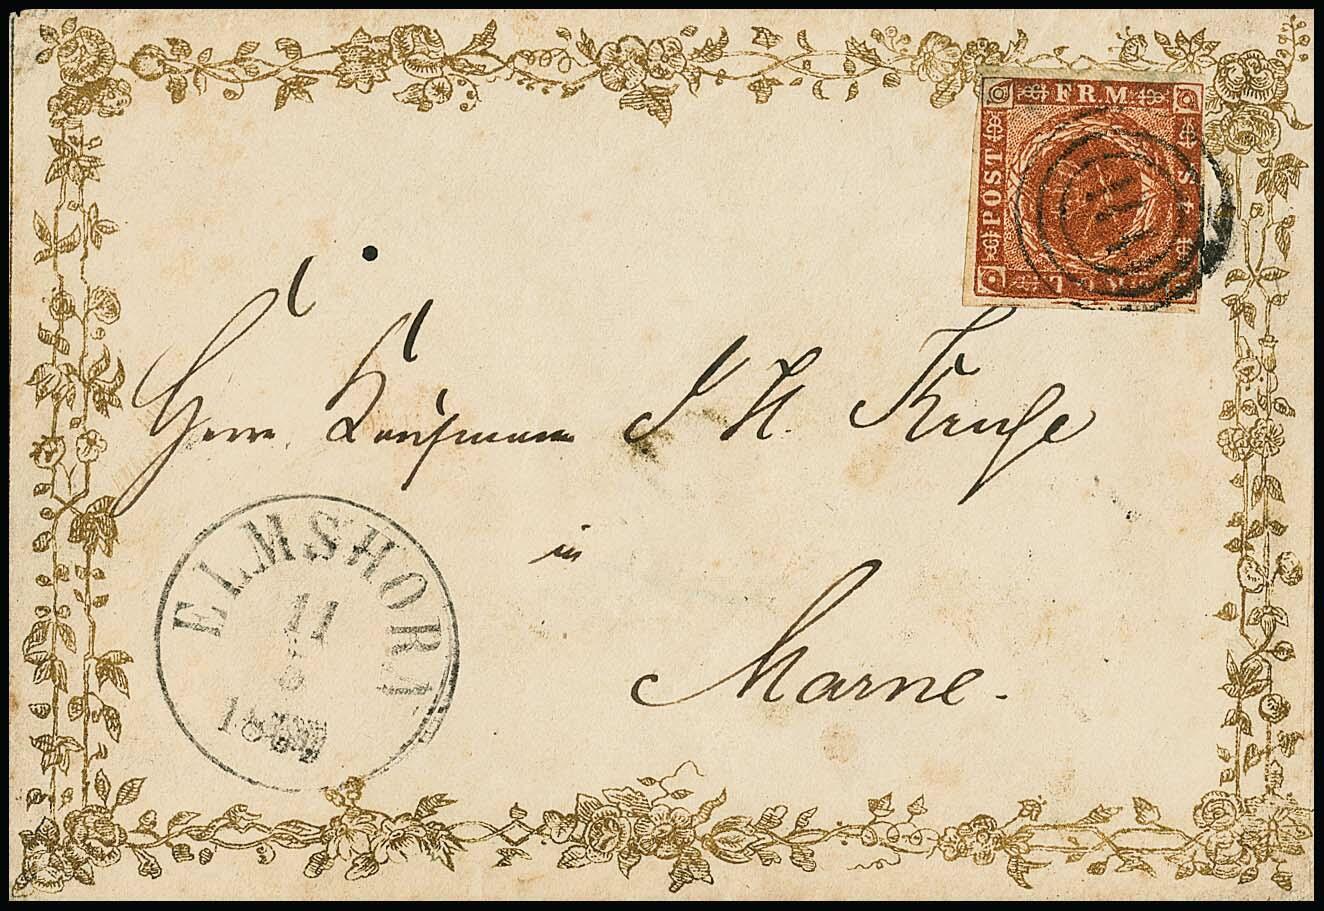 FRM
POST
S
Herr Kaufmann J H. Kruse
in
Marne.
ELMSHORN
11